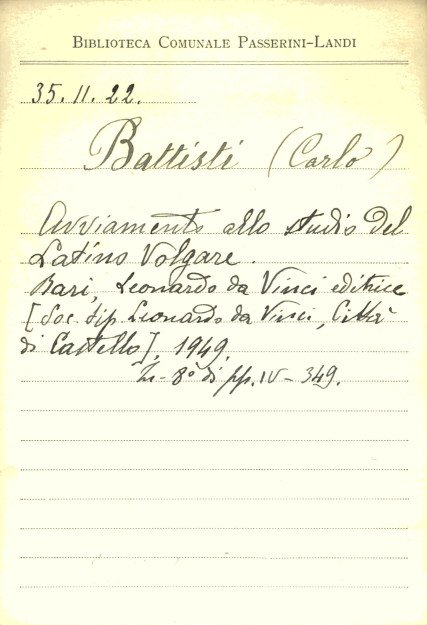 BIBLIOTECA COMUNALE PASSERINI-LANDI
35.11.22.
Battisti (Carlo)
Avviamento allo studio del
Latino Volgare.
Bari, Leonardo da Vinci editrice
[Soc. tip. Leonardo da Vinci, Città
di Castello], 1949.
In-8° di pp. IV-349.